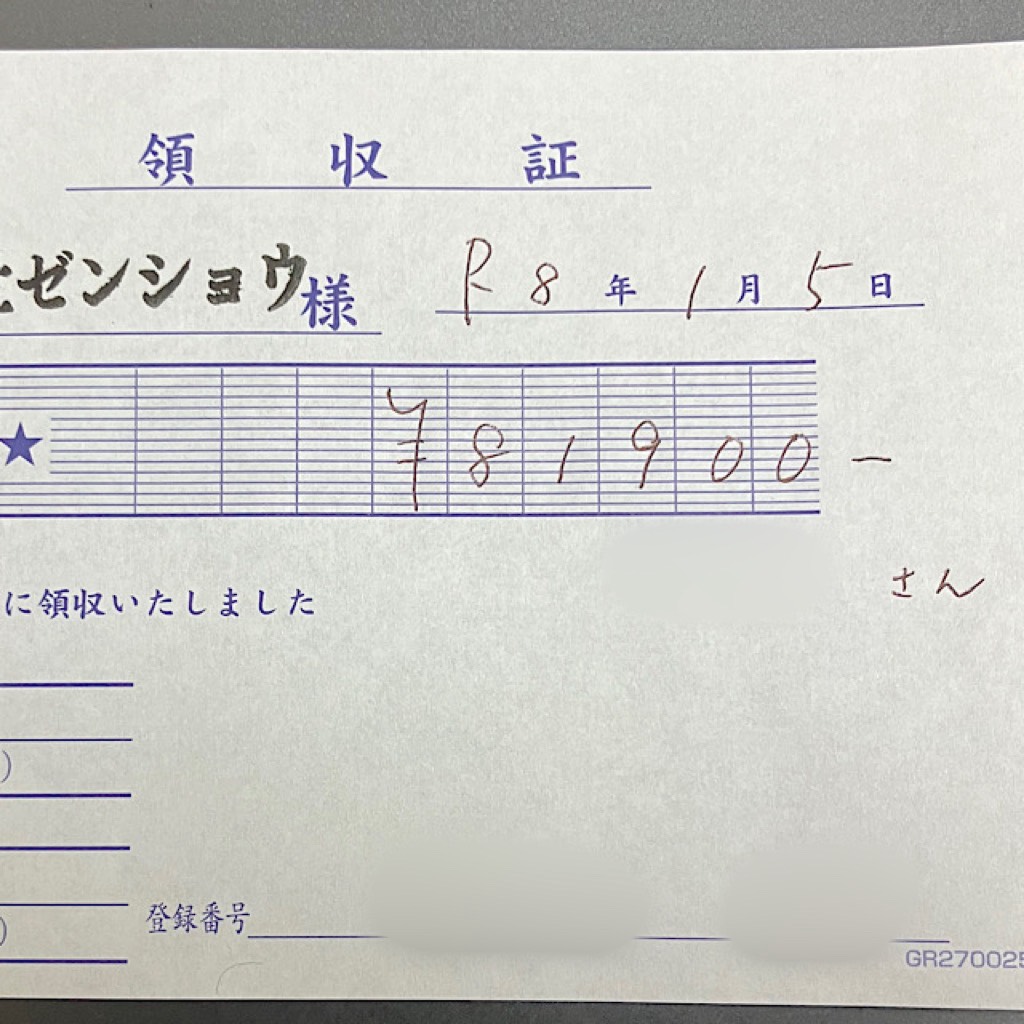 領収証
ゼンショウ様 R8年1月5日
★ ¥81900-
さん
に領収いたしました
)
登録番号
)
GR270025